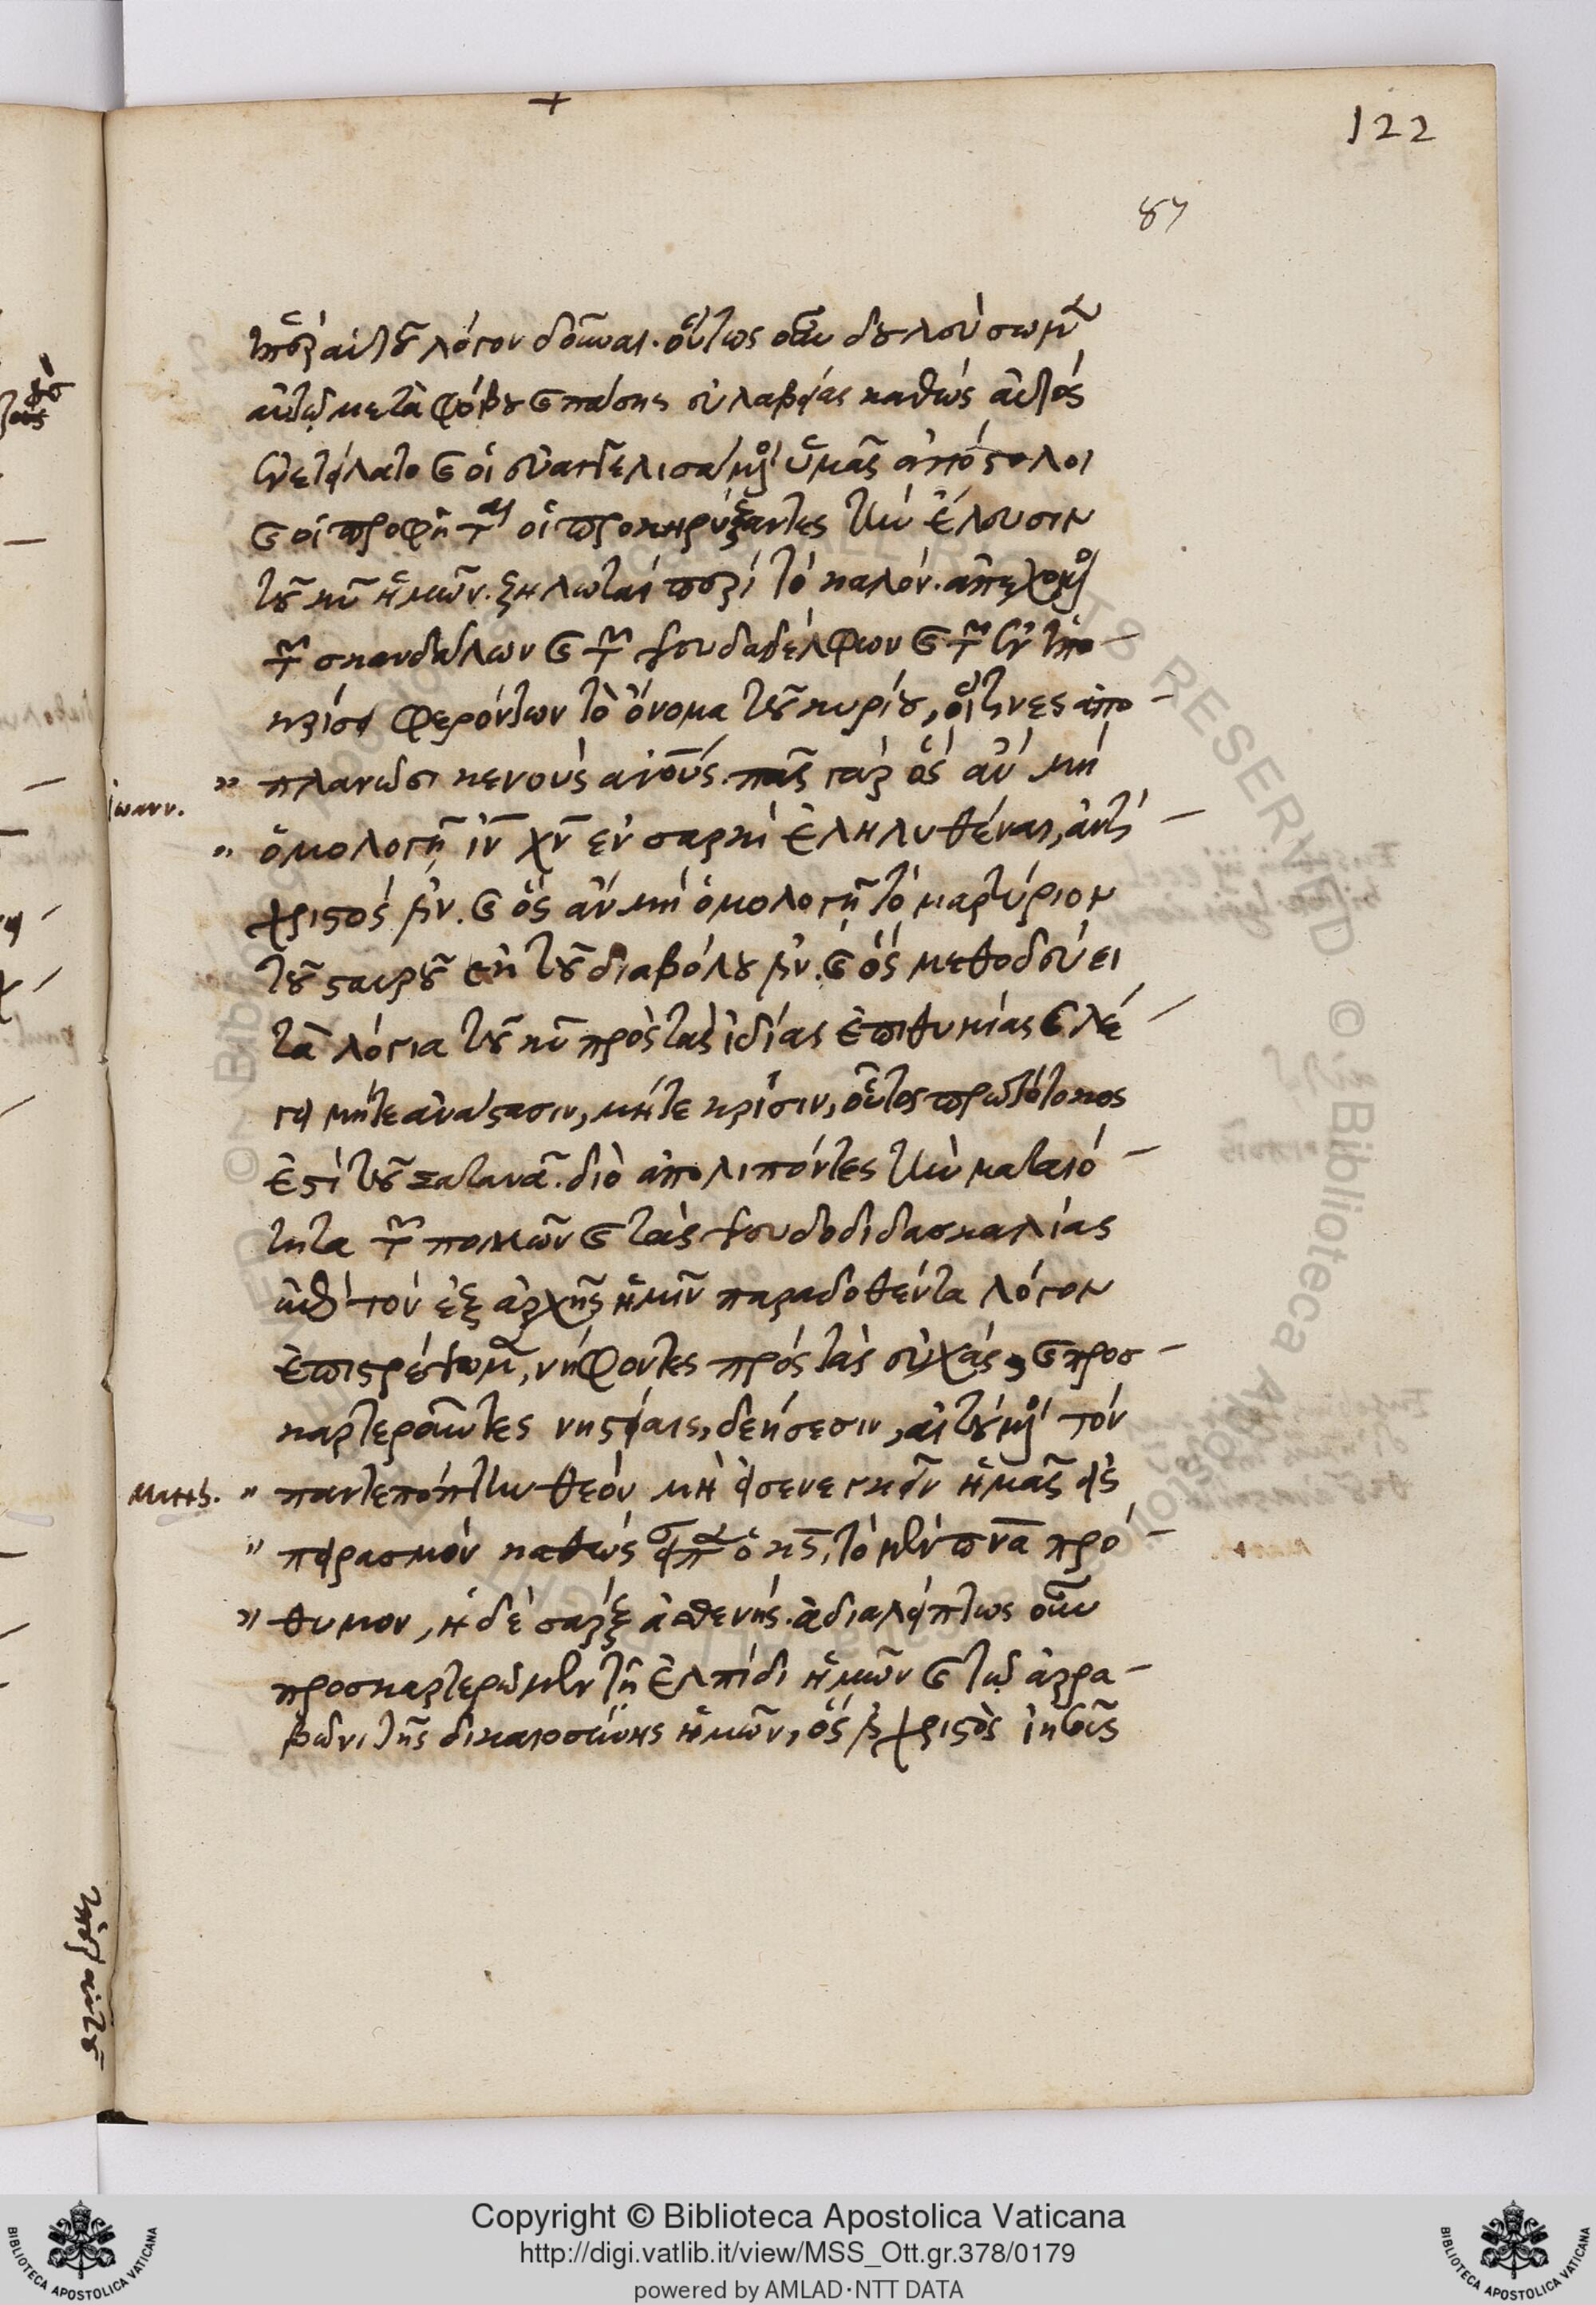 122
87
ὑπὲρ αὐτοῦ λόγον δοῦναι. οὕτως οὖν δουλεύσωμεν
αὐτῷ μετὰ φόβου καὶ πάσης εὐλαβείας καθὼς αὐτὸς
ἐνετείλατο καὶ οἱ εὐαγγελισάμενοι ὑμᾶς ἀπόστολοι
καὶ οἱ προφῆται οἱ προκηρύξαντες τὴν ἔλευσιν
τοῦ κυ ἡμῶν. ζηλωταὶ περὶ τὸ καλόν. ἀπεχόμενοι
τῶν σκανδάλων καὶ τῶν ψευδαδέλφων καὶ τῶν ἐν ὑπο-
κρίσει φερόντων τὸ ὄνομα τοῦ κυρίου, οἵτινες ἀπο-
" πλανῶσι κενοὺς ἀνους. πᾶς γὰρ ὃς ἂν μὴ
ἰωανν.
" ὁμολογῇ ιν χν ἐν σαρκὶ ἐληλυθέναι, ἀντί-
χριστός ἐστιν. καὶ ὃς ἂν μὴ ὁμολογῇ τὸ μαρτύριον
τοῦ σταυροῦ ἐκ τοῦ διαβόλου ἐστίν. καὶ ὃς μεθοδεύει
τὰ λόγια τοῦ κυ πρὸς τὰς ἰδίας ἐπιθυμίας καὶ λέ-
γει μήτε ἀνάστασιν, μήτε κρίσιν, οὗτος πρωτότοκος
ἐστὶ τοῦ σατανᾶ. διὸ ἀπολιπόντες τὴν ματαιό-
τητα τῶν πολλῶν καὶ τὰς ψευδοδιδασκαλίας
ἐπὶ τὸν ἐξ ἀρχῆς ἡμῖν παραδοθέντα λόγον
ἐπιστρέψωμεν, νήφοντες πρὸς τὰς εὐχάς, καὶ προσ-
καρτεροῦντες νηστείαις, δεήσεσιν, αἰτούμενοι τὸν
ματθ. " παντεπόπτην θεὸν μὴ εἰσενεγκεῖν ἡμᾶς εἰς
" πειρασμὸν καθὼς εἶπεν ὁ κς, τὸ μὲν πνα πρό-
" θυμον, ἡ δὲ σὰρξ ἀσθενής. ἀδιαλείπτως οὖν
προσκαρτερῶμεν τῇ ἐλπίδι ἡμῶν καὶ τῷ ἀρρα-
βῶνι τῆς δικαιοσύνης ἡμῶν, ὅς ἐστι χριστὸς ἰησοῦς
ὑπὲρ αὐτοῦ
Copyright © Biblioteca Apostolica Vaticana
http://digi.vatlib.it/view/MSS_Ott.gr.378/0179
powered by AMLAD·NTT DATA